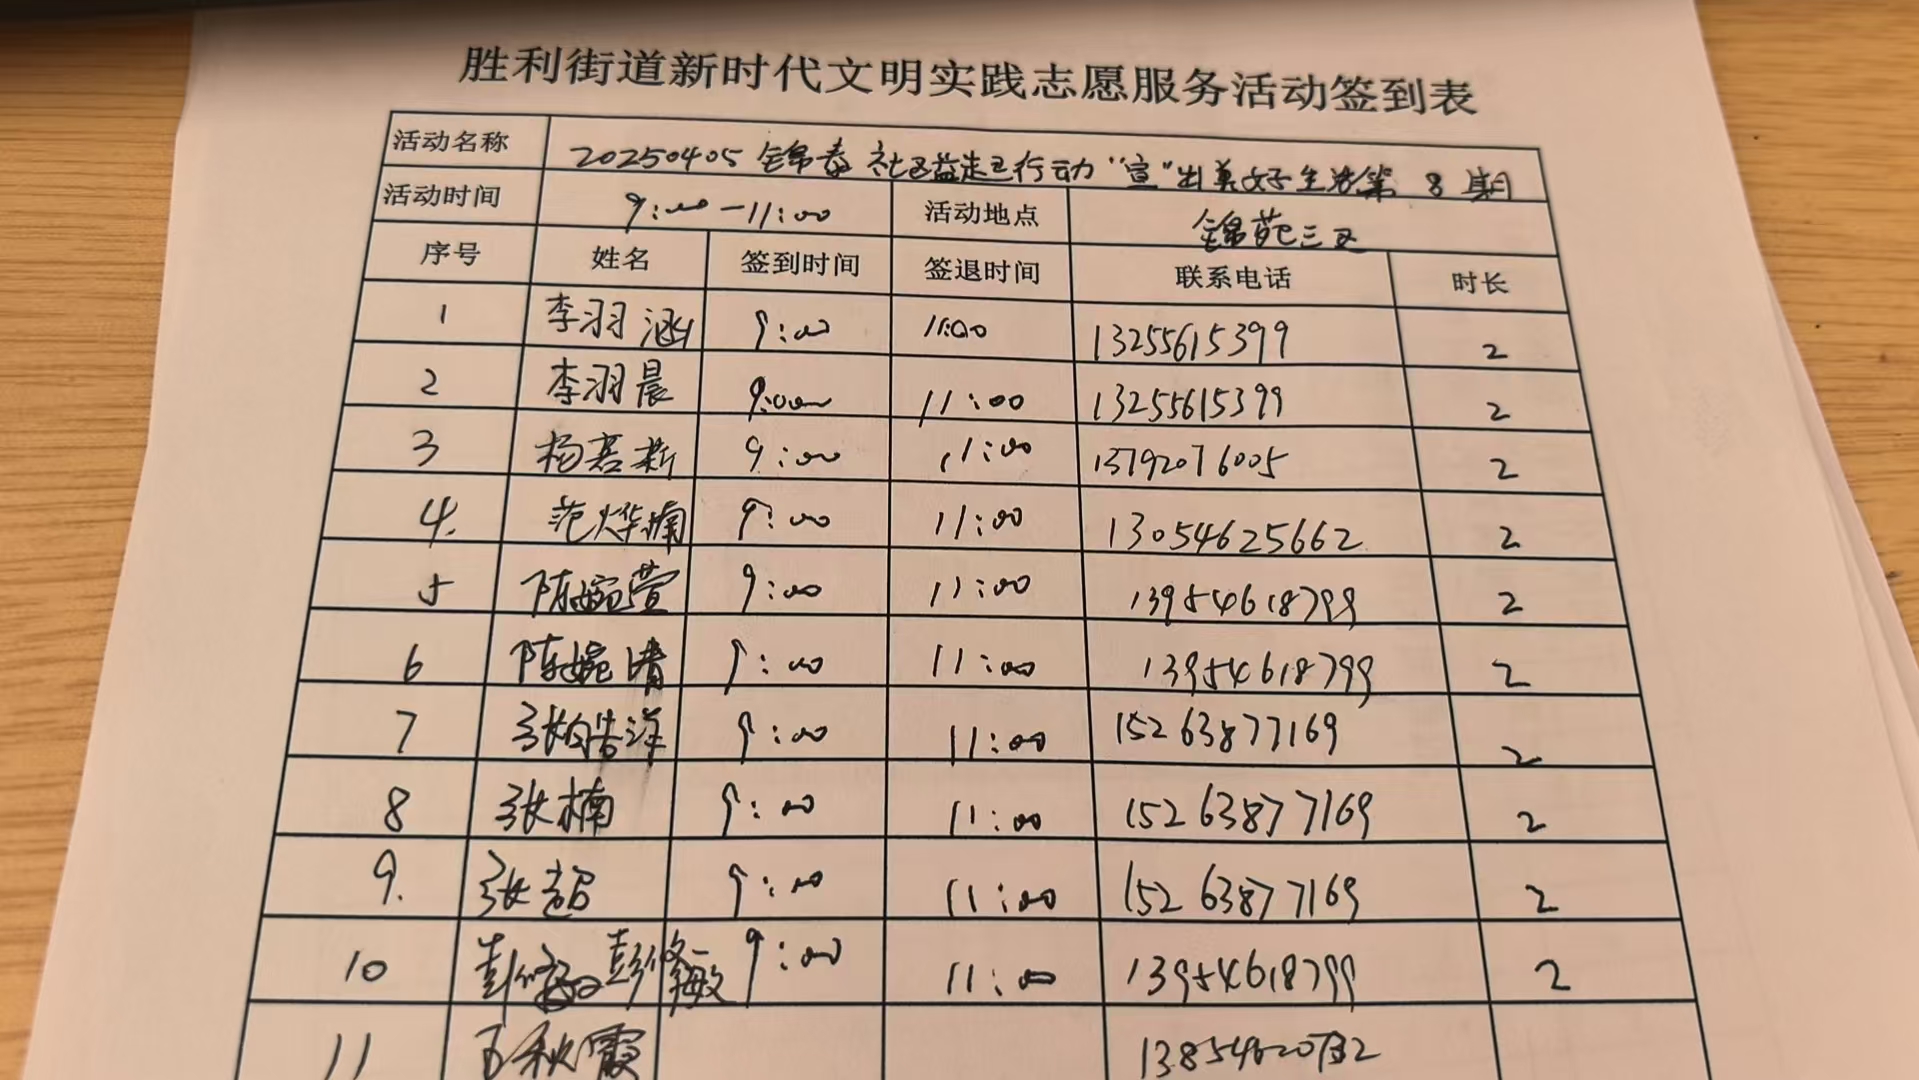 胜利街道新时代文明实践志愿服务活动签到表
活动名称 20250405 锦春社区益起行动“宣”出美好生活第 8 期
活动时间 9:00-11:00 活动地点 锦苑三区
序号 姓名 签到时间 签退时间 联系电话 时长
1 李羽涵 9:00 11:00 13255615399 2
2 李羽晨 9:00 11:00 13255615399 2
3 杨 9:00 11:00 13792076005 2
4. 范烨楠 9:00 11:00 13054625662 2
5 陈婉萱 9:00 11:00 13954618799 2
6 陈婉清 9:00 11:00 13954618799 2
7 张皓洋 9:00 11:00 15263877169 2
8 张楠 9:00 11:00 15263877169 2
9. 张超 9:00 11:00 15263877169 2
10 彭修敏 9:00 11:00 13954618799 2
11 王秋霞